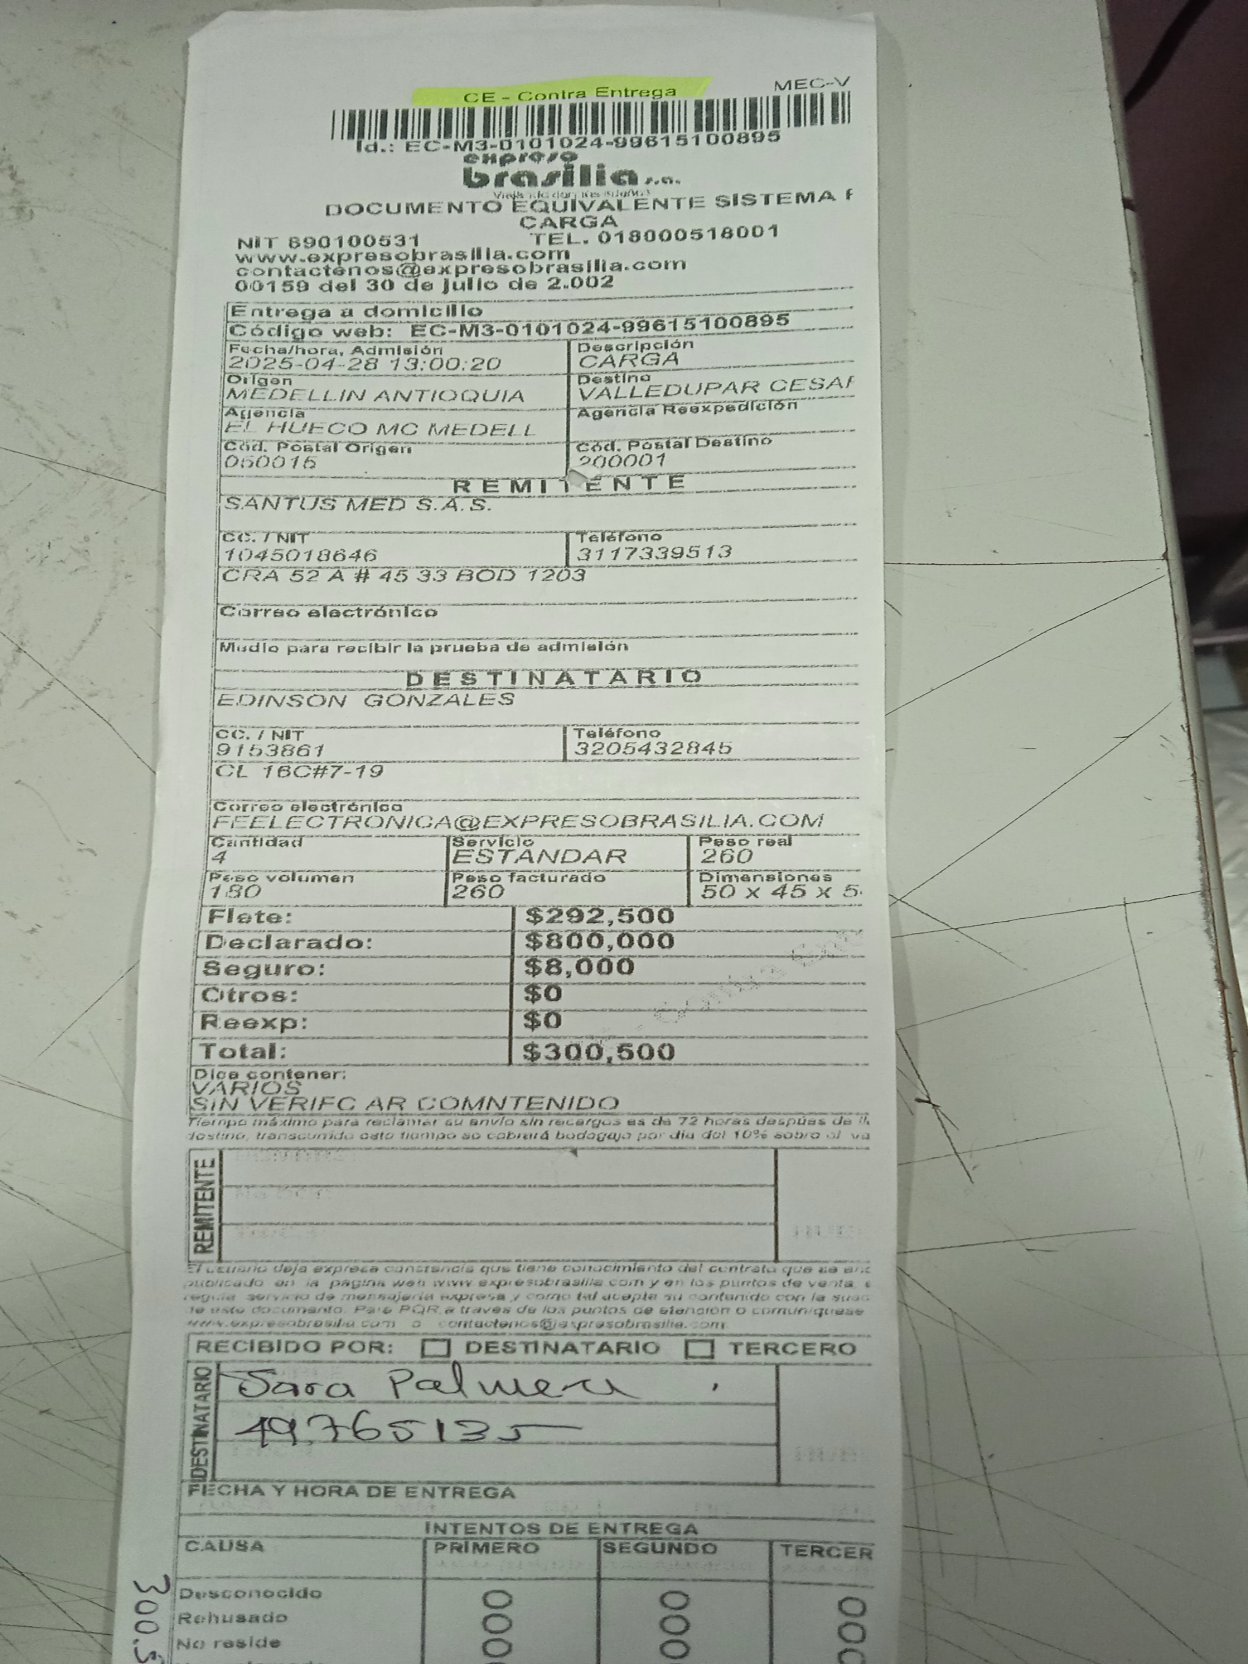 CE - Contra Entrega
MEC-V
Id.: EC-M3-0101024-99615100895
expreso
brasilia s.a.
DOCUMENTO EQUIVALENTE SISTEMA
CARGA
NIT 890100531 TEL. 018000518001
www.expresobrasilia.com
contactenos@expresobrasilia.com
00159 del 30 de julio de 2.002
Entrega a domicilio
Código web: EC-M3-0101024-99615100895
Fecha/hora, Admisión Descripción
2025-04-28 13:00:20 CARGA
Origen Destino
MEDELLIN ANTIOQUIA VALLEDUPAR CESAR
Agencia Agencia Reexpedición
EL HUECO MC MEDELL
Cód. Postal Origen Cód. Postal Destino
050015 200001
REMITENTE
SANTUS MED S.A.S.
CC. / NIT Teléfono
1045018646 3117339513
CRA 52 A # 45 33 BOD 1203
Correo electrónico
Medio para recibir la prueba de admisión
DESTINATARIO
EDINSON GONZALES
CC. / NIT Teléfono
9153861 3205432845
CL 16C#7-19
Correo electrónico
FEELECTRONICA@EXPRESOBRASILIA.COM
Cantidad Servicio Peso real
4 ESTANDAR 260
Peso volumen Peso facturado Dimensiones
180 260 50 x 45 x 5
Flete: $292,500
Declarado: $800,000
Seguro: $8,000
Otros: $0
Reexp: $0
Total: $300,500
Dice contener:
VARIOS
SIN VERIFC AR COMNTENIDO
Tiempo máximo para reclamar su envío sin recargos es de 72 horas después de
destino, transcurrido este tiempo se cobrará bodegaje por día del 10% sobre el va
REMITENTE
El usuario deja expresa constancia que tiene conocimiento del contrato que se enc
publicado en la pagina web www expresobrasilia com y en los puntos de venta,
regula servicio de mensajería expresa y como tal acepta su contenido con la susc
de este documento. Para PQR a través de los puntos de atencion o comuniquese
www.expresobrasilia com o contactenos@expresobrasilia.com
RECIBIDO POR: DESTINATARIO TERCERO
DESTINATARIO
Sara Palmera
49765135
FECHA Y HORA DE ENTREGA
INTENTOS DE ENTREGA
CAUSA PRIMERO SEGUNDO TERCER
Desconocido
Rehusado
No reside
300.5